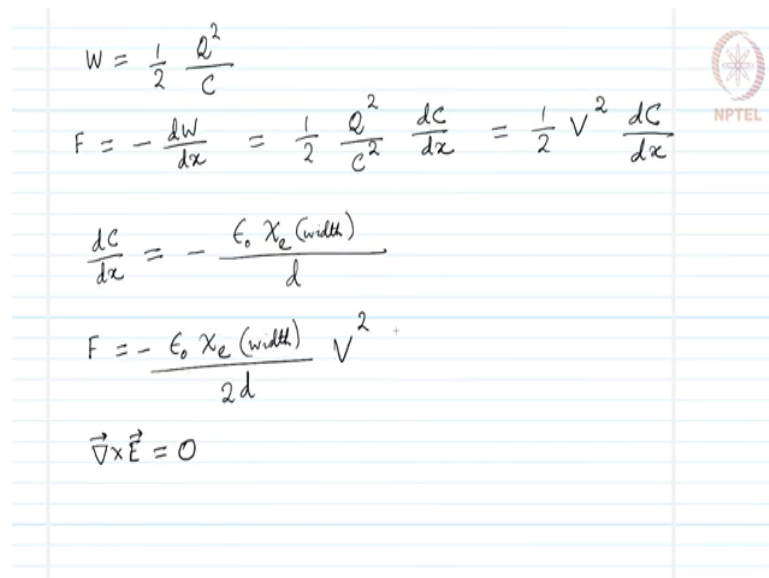 W = 1/2 Q²/C
NPTEL
F = − dW/dx = 1/2 Q²/C² dC/dx = 1/2 V² dC/dx
dC/dx = − ϵ₀ χₑ (width)/d
F = − ϵ₀ χₑ (width)/2d V²
∇⃗ × E⃗ = 0